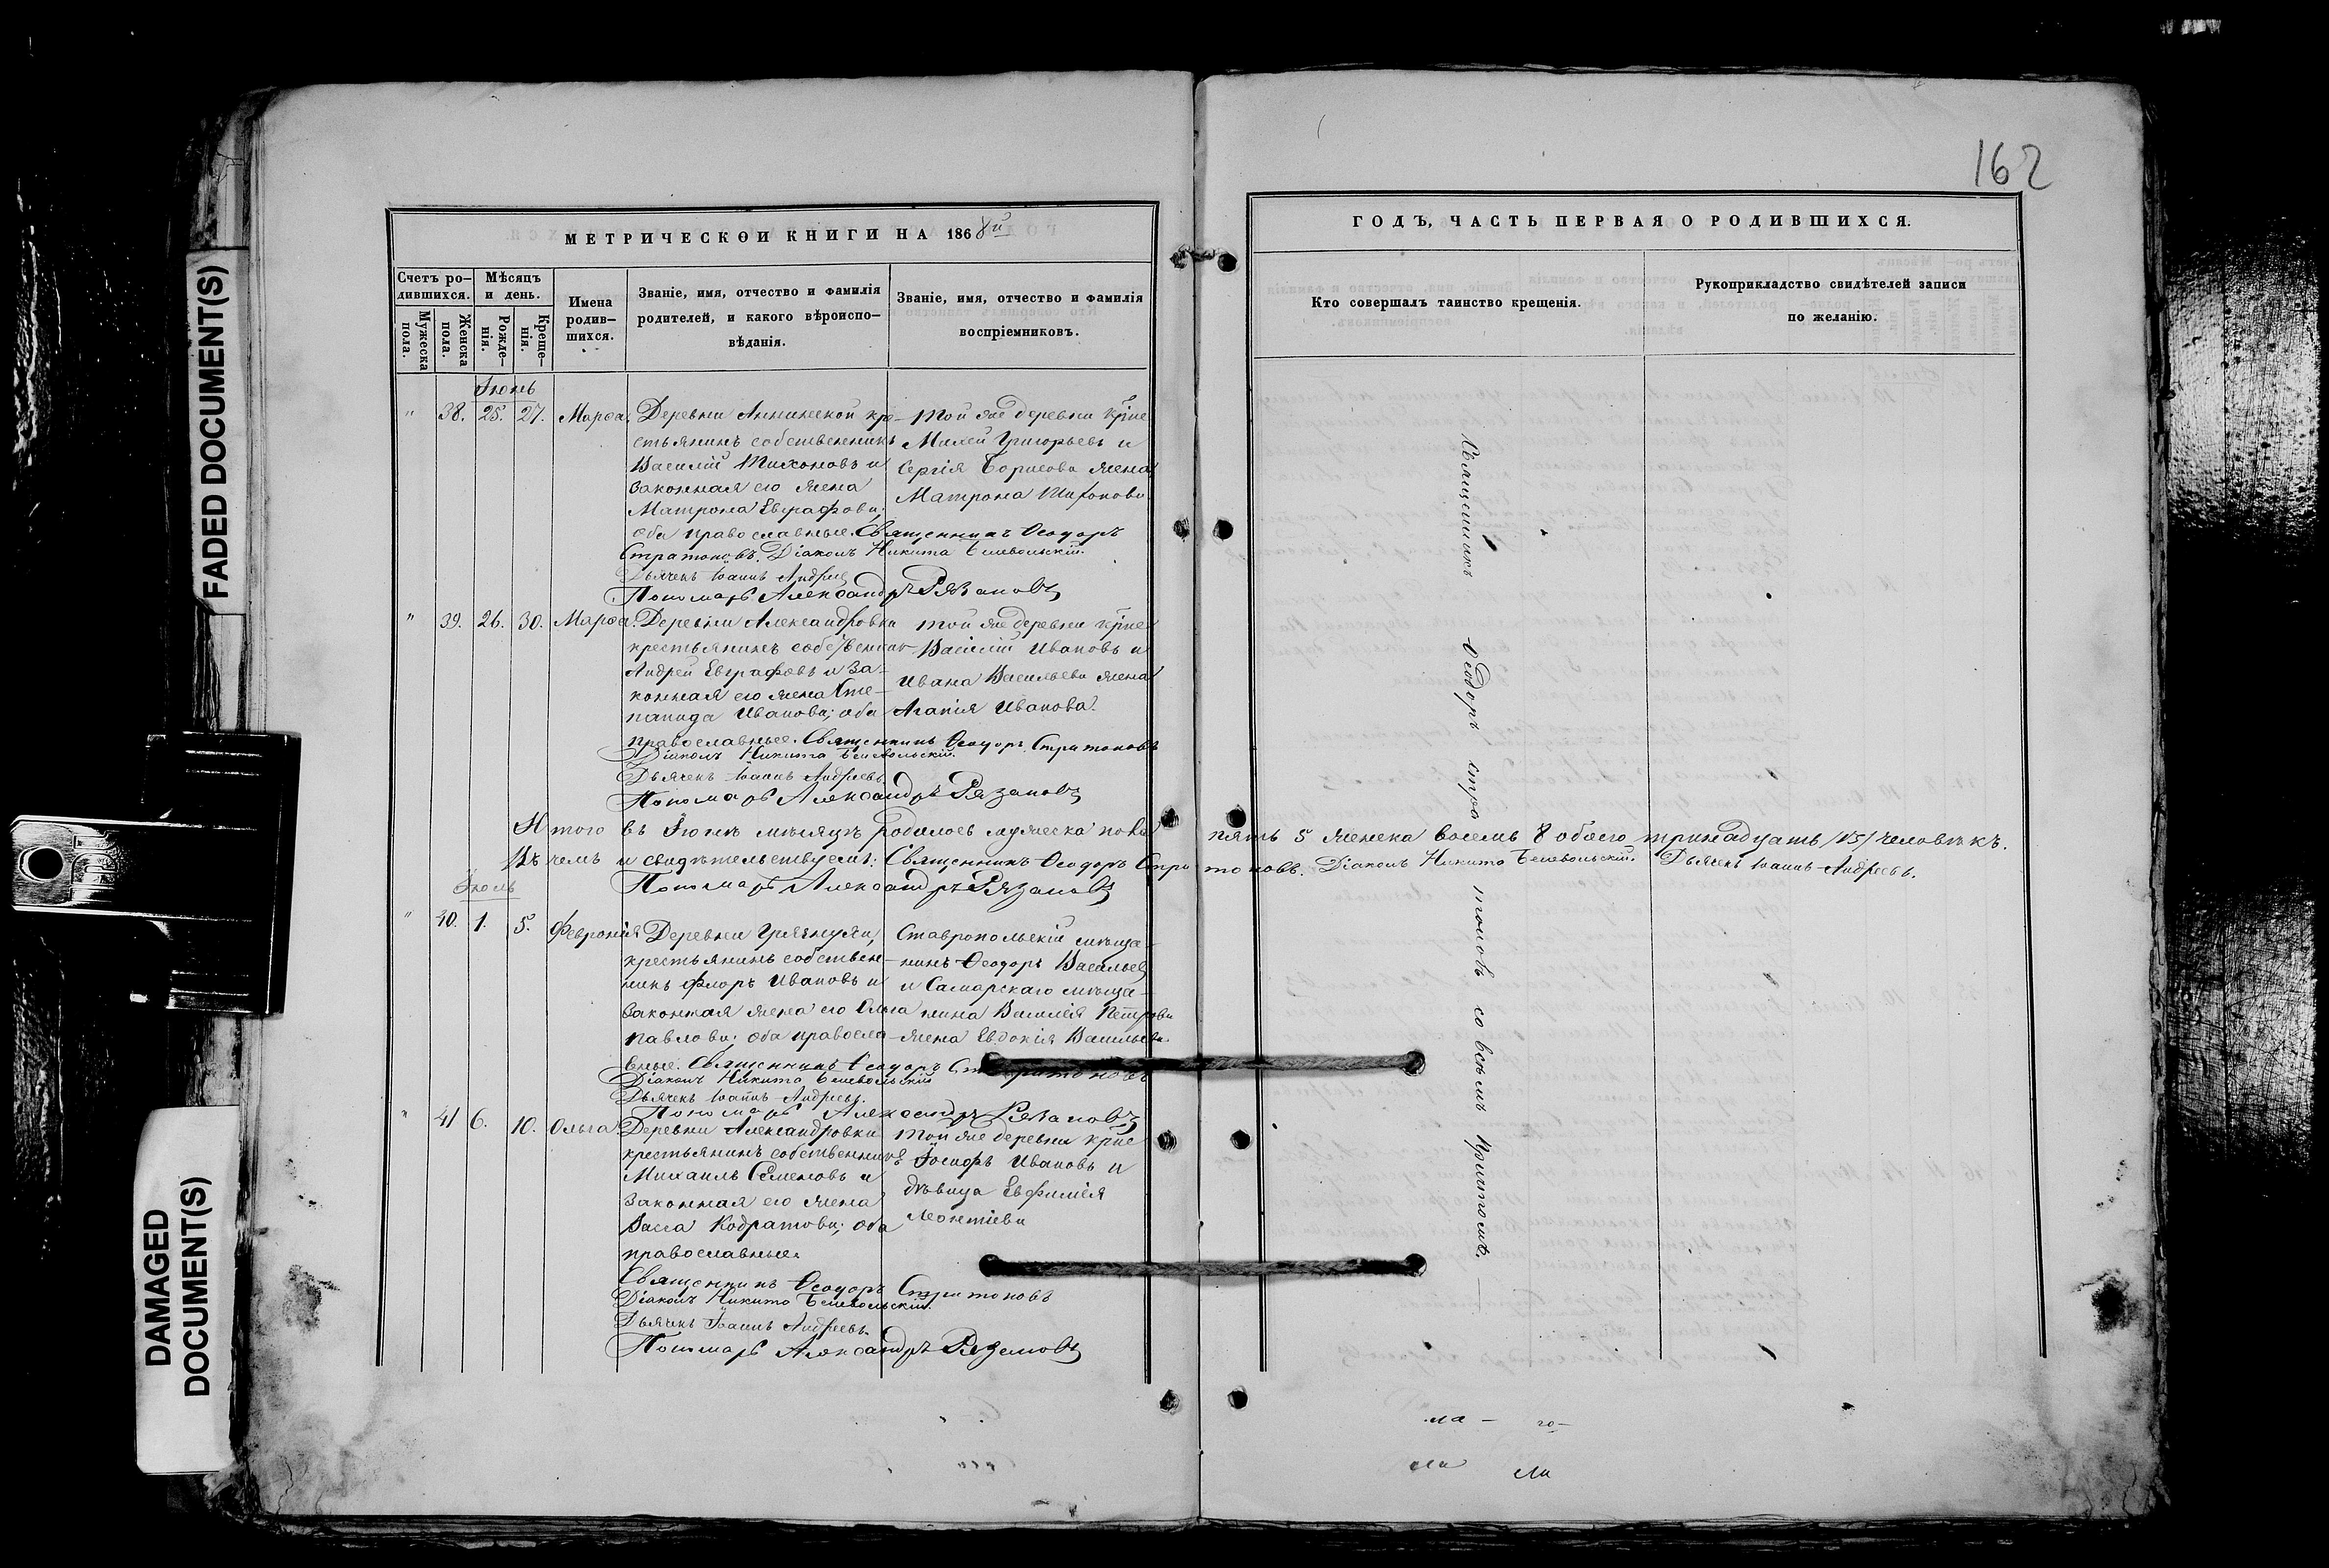 162
МЕТРИЧЕСКОЙ КНИГИ НА 1868й
ГОДЪ, ЧАСТЬ ПЕРВАЯ О РОДИВШИХСЯ.
Счетъ ро-
дившихся.
Мужеска пола.
Женска пола.
Мѣсяцъ
и день.
Рожде-
нія.
Креще-
нія.
Имена
родив-
шихся.
Званіе, имя, отчество и фамилія
родителей, и какого вѣроиспо-
вѣданія.
Званіе, имя, отчество и фамилія
воспріемниковъ.
Кто совершалъ таинство крещенія.
Рукоприкладство свидѣтелей записи
по желанію.
Іюнь
" 38. 25. 27. Марѳа.
Деревни Аннинской кре-
стьянинъ собственникъ
Василій Тихоновъ и
законная его жена
Матрона Евграфова;
оба православные. Священникъ Ѳеодоръ
Стратоновъ. Діаконъ Никита
Дьячекъ Іоаннъ Андреев
Пономарь Александръ Рязановъ
Той же деревни крне
Михей Григорьевъ и
Сергія Борисова жена
Матрона
" 39. 26. 30. Марѳа.
Деревни Александровки
крестьянинъ собственник
Андрей Евграфовъ и за-
конная его жена Сте-
панида Иванова; оба
православные. Священникъ Ѳеодоръ Стратоновъ
Діаконъ Никита
Дьячекъ Іоаннъ Андреевъ
Пономарь Александръ Рязановъ
Той же деревни крне
Василій Ивановъ и
Ивана Васильева жена
Агапія Иванова.
Итого въ Іюнѣ мѣсяцѣ родилось мужеска пола пять 5 женска восемь 8 обоего тринадцать /13/ человѣкъ.
Въ чемъ и свидѣтельствуемъ: Священникъ Ѳеодоръ Стратоновъ. Діаконъ Никита Дьячекъ Іоаннъ Андреевъ.
Пономарь Александръ Рязановъ
Іюль
" 40. 1. 5. Февронія
Деревни Грязнухи,
крестьянинъ собствен-
никъ Флоръ Ивановъ и
законная жена его Ольга
Павлова; оба правосла-
вные. Священникъ Ѳеодоръ Стратоновъ
Діаконъ Никита
Дьячекъ Іоаннъ Андреевъ.
Пономарь Александръ Рязановъ
Ставропольскій мѣща-
нинъ Ѳеодоръ Васильев
и Самарскаго мѣща-
нина Василія Петрова
жена Евдокія Васильева.
" 41 6. 10. Ольга.
Деревни Александровки
крестьянинъ собственникъ
Михаилъ Семеновъ и
законная его жена
Васса Кодратова; оба
православные.
Священникъ Ѳеодоръ Стратоновъ
Діаконъ Никита
Дьячекъ Іоаннъ Андреевъ.
Пономарь Александръ Рязановъ
Той же деревни крне
Іосифъ Ивановъ и
дѣвица Евфимія
Леонтіева
Священникъ Ѳеодоръ Стратоновъ со всѣмъ причтомъ.
FADED DOCUMENT(S)
DAMAGED
DOCUMENT(S)